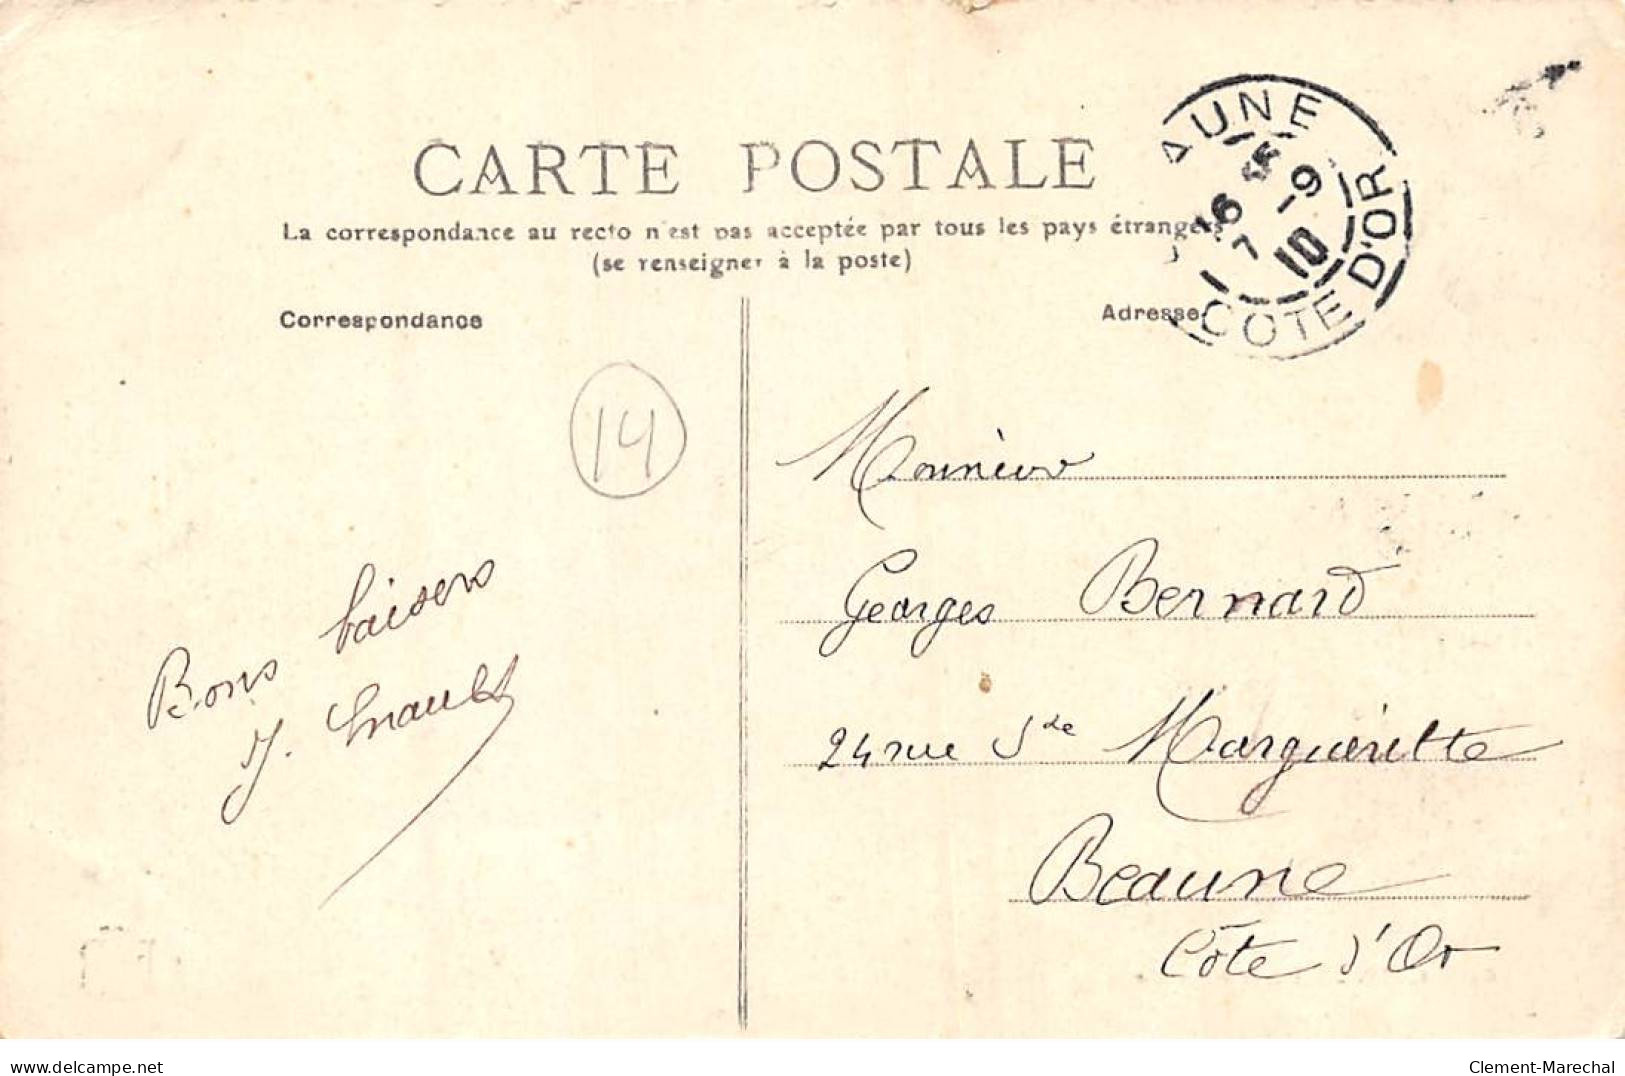 CARTE POSTALE
La correspondance au recto n'est pas acceptée par tous les pays étrangers
(se renseigner à la poste)
Correspondance
Adresse
AUNE
16 -9
7 10
COTE D'OR
14
Bons baisers
Monsieur
Georges Bernard
24 rue Ste Margueritte
Beaune
Côte d'Or
Clement-Marechal